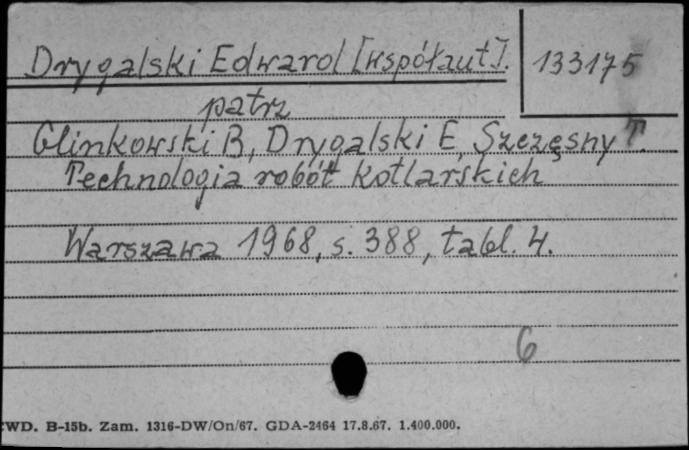 Drygalski Edward [współaut].
133175
patrz
Glinkowski B, Drygalski E, Szczęsny T.
Technologia robót kotlarskich
Warszawa 1968, s. 388, tabl. 4.
6
CWD. B-15b. Zam. 1316-DW/On/67. GDA-2464 17.8.67. 1.400.000.